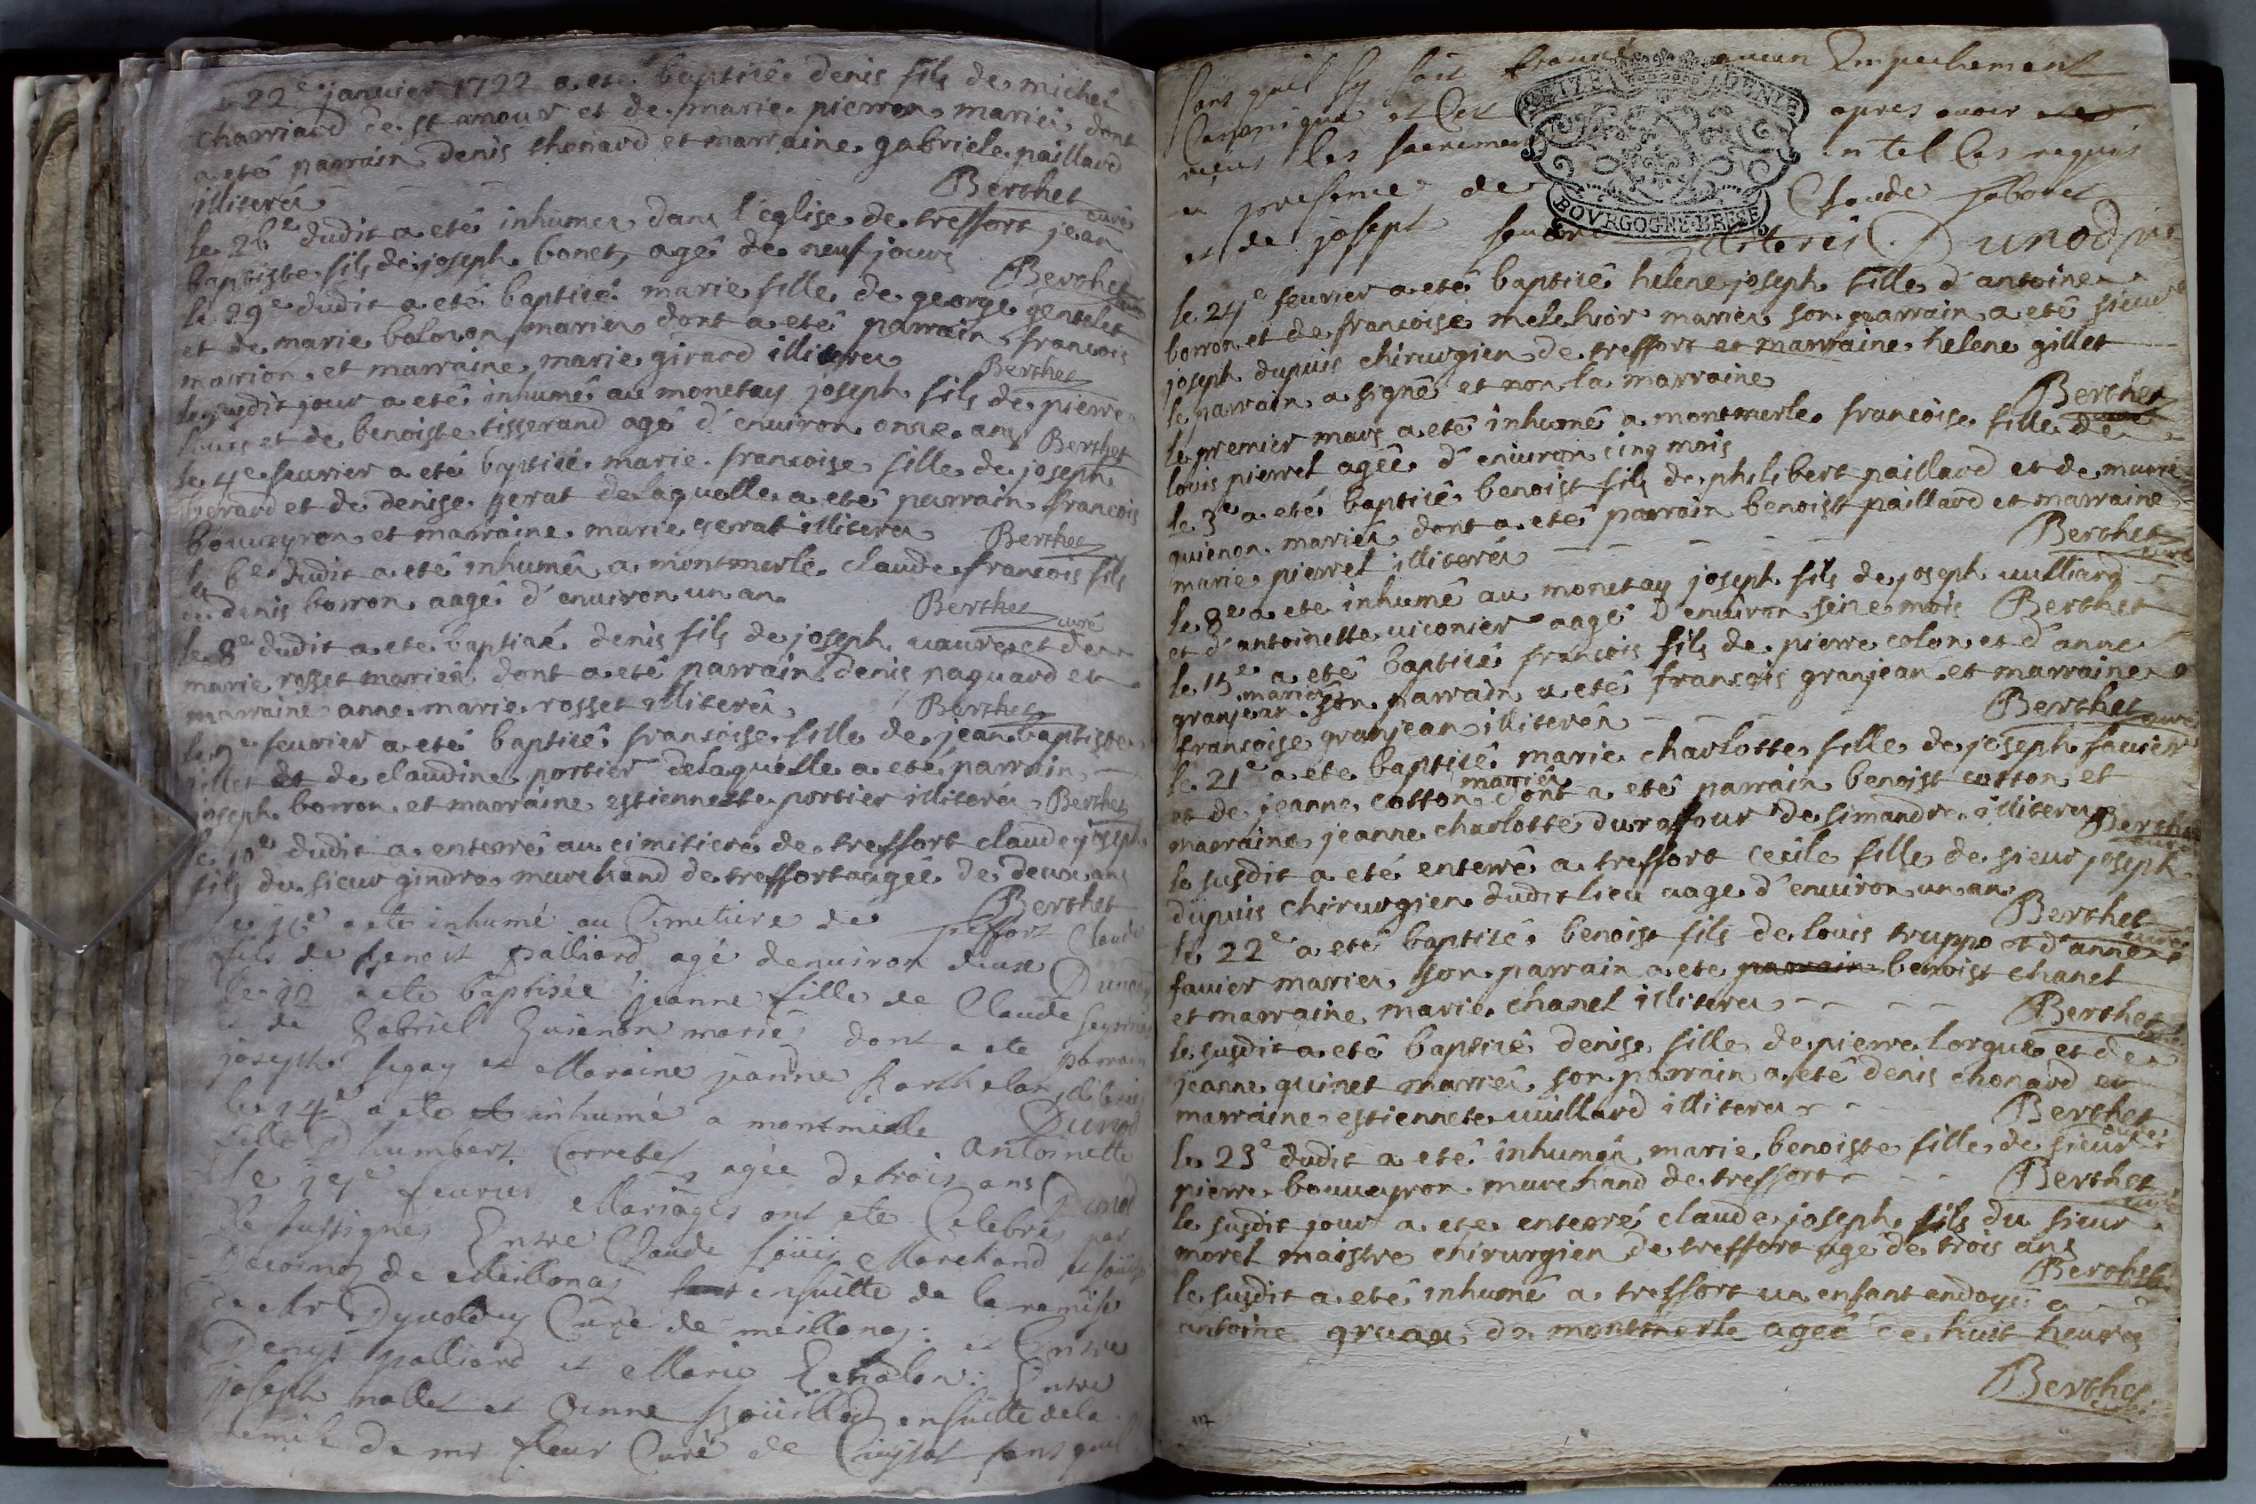 22e janvier 1722 a eté baptizé denis fils de michel
charriard de st amour et de marie pierron mariés dont
a eté parrain denis thenard et marraine gabriele paillard
illiterés
Berthet curé
le 26e dudit a eté inhumé dans l'eglise de treffort jean
baptiste fils de joseph bonet, agé de neuf jours
Berthet
le 29e dudit a eté baptizé marie fille de george gentelet
et de marie bolonon mariés dont a eté parrain francois
marion et marraine marie girard illiterés
Berthet
le susdit jour a eté inhumé au monetay joseph fils de pierre
et de benoiste tisserand agé d'environ onze ans Berthet
le 4e fevrier a eté baptizé marie francoise fille de joseph
berard et de denise gerat de laquelle a eté parrain francois
bouveyron et marraine marie gerrat illiterés
Berthet
le 6e dudit a eté inhumé a montmerle claude francois fils
de denis borron aagé d'environ un an
Berthet curé
le 8e dudit a eté baptizé denis fils de joseph vavre et de
marie rosset mariés dont a eté parrain denis paquard et
marraine anne marie rosset illiterés
Berthet
le 9e fevrier a eté baptizé francoise fille de jean baptiste
gillet et de claudine portier de laquelle a eté parrain
joseph borron et marraine estiennette portier illiterés Berthet
le 10e dudit a enterré au cimitiere de treffort claude joseph
fils du sieur gindre marchand de treffort aagée de deux ans
Berthet
le 11e a eté inhumé au Cimetiere de treffort Claude
fils de benoit palliard agé denviron deux
Dunod
le 12 a ete baptisée jeanne fille de Claude
et de Gabriel Guienon mariés dont a ete parrain
joseph Segay et Maraine jeanne Barthelon illiterés
Dunod
le 14e a ete inhumé a montmerle antoinette
fille D'humbert Correbet agée de trois ans Dunod
le 17e fevrier Mariages ont ete Celebrés par
le sussigné Entre Claude Louis Marchand et
de Meillonas ensuitte de la remise
de Mr Curé de meillonas: et Entre
Denys palliard et Marie Echalon: Entre
joseph mallet et Anne Bouillod ensuitte de la
remise de mr fleur Curé de Cuysiat sans quil
sans quil sy soit trouvé aucun Empechement
Canonique et Cet apres avoir
reçus les sacremen en tel Cas requis
en presence de Claude sabonet
et de joseph illiterés. Dunod
SEIZE DENIE
BOVRGOGNE BRESSE
le 24e fevrier a eté baptizé helene joseph fille d'antoine
borron et de francoise melchior mariés son parrain a eté sieur
joseph dupuis chirurgien de treffort et marraine helene gillet
le parrain a signé et non la marraine
Berthet curé
le premier mars a eté inhumé a montmerle francoise fille de
louis pierrel agée d'environ cinq mois
le 3e a eté baptizé benoist fils de philibert paillard et de marie
guienon mariés dont a eté parrain benoist paillard et marraine
marie pierrel illiterés
Berthet curé
le 8e a ete inhumé au monetay joseph fils de joseph vulliard
et d'antoinette viconier aagé d'environ seize mois Berthet
le 15e a eté baptizé francois fils de pierre colon et d'anne
granjean mariés son parrain a eté francois granjean et marraine
francoise granjean illiterés
Berthet curé
le 21e a ete baptizé marie charlotte fille de joseph favier
et de jeanne cotton mariés dont a eté parrain benoist cotton et
marraine jeanne charlotte durafour de simandre illiterés
Berthet curé
le susdit a eté enterré a treffort cecile fille de sieur joseph
dupuis chirurgien dudit lieu aage d'environ un an
Berthet curé
le 22e a eté baptizé benoist fils de louis truppo et d'anne
favier mariés son parrain a ete parrain benoist chanel
et marraine marie chanel illiterés
Berthet curé
le susdit a eté baptizé denise fille de pierre lorgue et de
jeanne quinet mariés son parrain a eté denis chonard et
marraine estiennete vuillard illiterés
Berthet curé
le 23e dudit a eté inhumée marie benoiste fille de sieur
pierre bouveyron marchand de treffort
Berthet curé
le susdit jour a ete enterré claude joseph fils du sieur
morel maistre chirurgien de treffort age de trois ans
Berthet
le susdit a eté inhumé a treffort un enfant endoyé a
antoine gruau de montmerle ageé de huit heures
Berthet curé
117